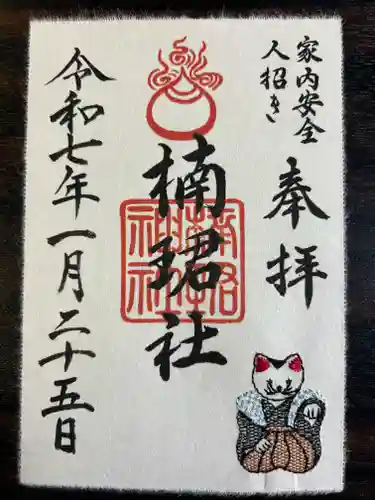 家内安全
人招き
奉拝
楠珺社
楠珺社
令和七年一月二十五日